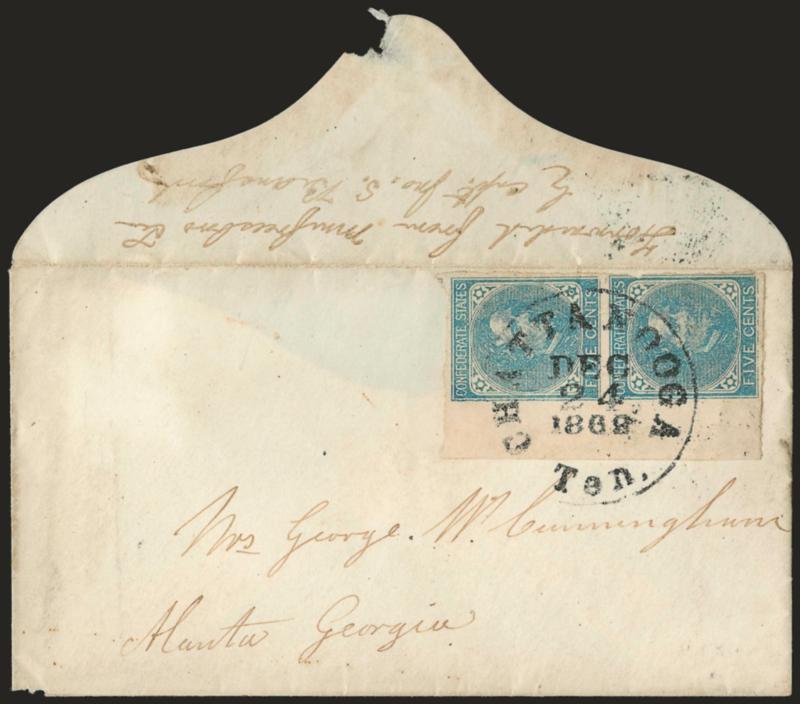 Forwarded from Murfreesboro Tn
by Capt. Jno. S. Bransford
CONFEDERATE STATES
FIVE CENTS
CONFEDERATE STATES
FIVE CENTS
CHATTANOOGA
DEC
24
1862
Ten.
Mrs George. W. Cunningham
Atlanta Georgia